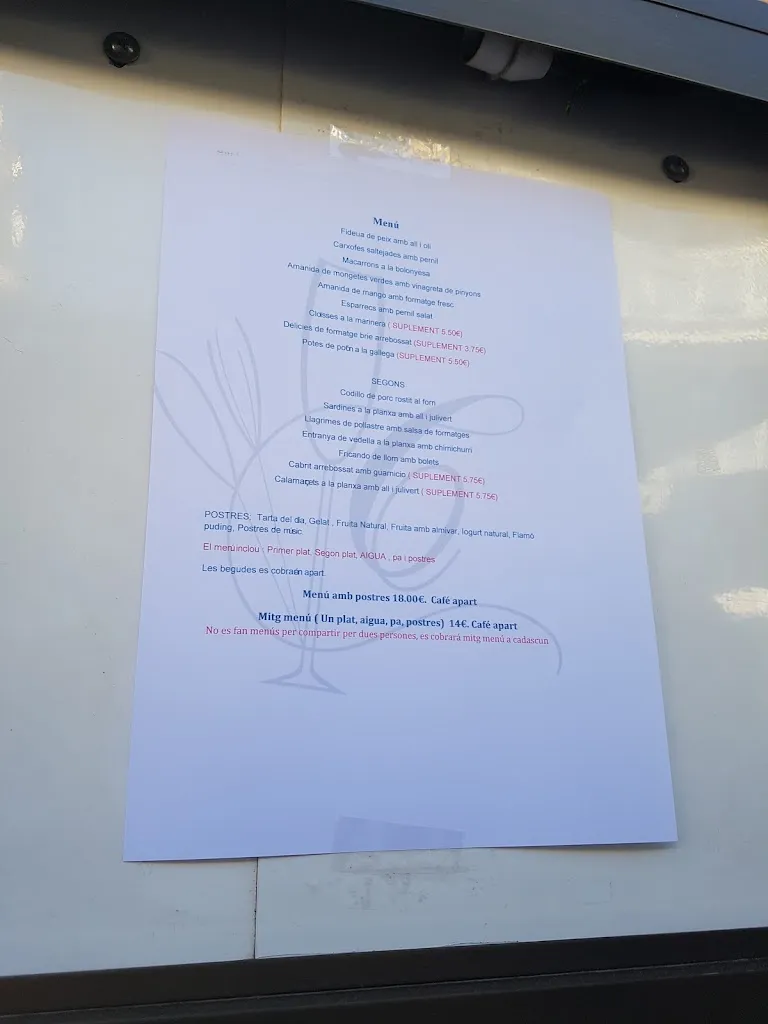 Menú
Fideua de peix amb all i oli
Carxofes saltejades amb pernil
Macarrons a la bolonyesa
Amanida de mongetes verdes amb vinagreta de pinyons
Amanida de mango amb formatge fresc
Esparrecs amb pernil salat
Cloïsses a la marinera ( SUPLEMENT 5.50€)
Delicies de formatge brie arrebossat (SUPLEMENT 3.75€)
Potes de pop a la gallega (SUPLEMENT 5.50€)
SEGONS
Codillo de porc rostit al forn
Sardines a la planxa amb all i julivert
Llagrimes de pollastre amb salsa de formatges
Entranya de vedella a la planxa amb chimichurri
Fricando de llom amb bolets
Cabrit arrebossat amb guarnicio ( SUPLEMENT 5.75€)
Calamarçets a la planxa amb all i julivert ( SUPLEMENT 5.75€)
POSTRES; Tarta del dia, Gelat , Fruita Natural, Fruita amb almivar, Iogurt natural, Flamó
puding, Postres de music
El menú inclou : Primer plat, Segon plat, AIGUA , pa i postres
Les begudes es cobraràn apart.
Menú amb postres 18.00€. Café apart
Mitg menú ( Un plat, aigua, pa, postres) 14€. Café apart
No es fan menús per compartir per dues persones, es cobrará mitg menú a cadascun